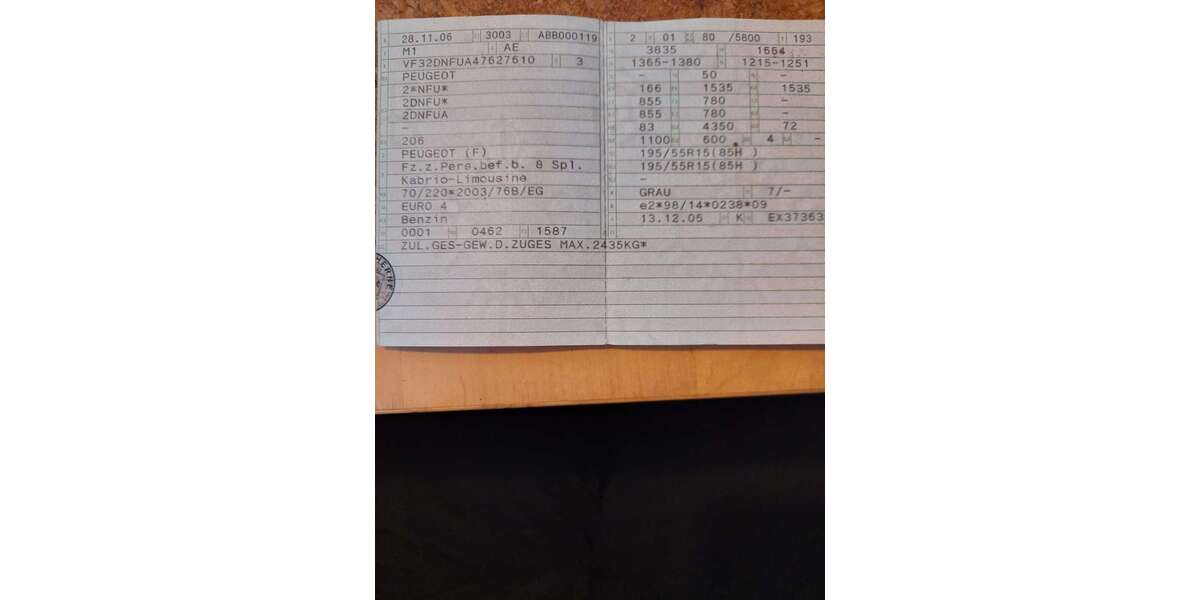 28.11.06 3003 ABB000119
M1 AE
VF32DNFUA47627610 3
PEUGEOT
2*NFU*
2DNFU*
2DNFUA
-
206
PEUGEOT (F)
Fz.z.Pers.bef.b. 8 Spl.
Kabrio-Limousine
70/220*2003/76B/EG
EURO 4
Benzin
0001 0462 1587
ZUL.GES-GEW.D.ZUGES MAX.2435KG*
HERNE
2 01 80 /5800 193
3835 1664
1365-1380 1215-1251
- 50 -
166 1535 1535
855 780 -
855 780 -
83 4350 72
1100 600 4 -
195/55R15(85H )
195/55R15(85H )
-
GRAU 7/-
e2*98/14*0238*09
13.12.05 K EX37363